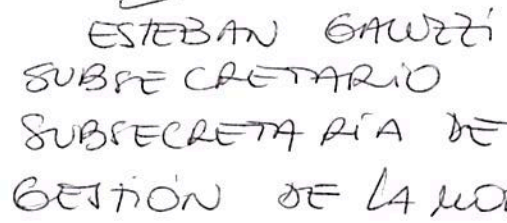 ESTEBAN GALUZZI
SUBSECRETARIO
SUBSECRETARÍA DE
GESTIÓN DE LA MO